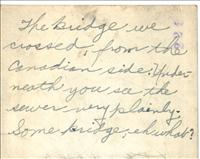 The bridge we
crossed, from the
Canadian side. Under-
neath you see the
sewer very plainly.
Some bridge, eh what?